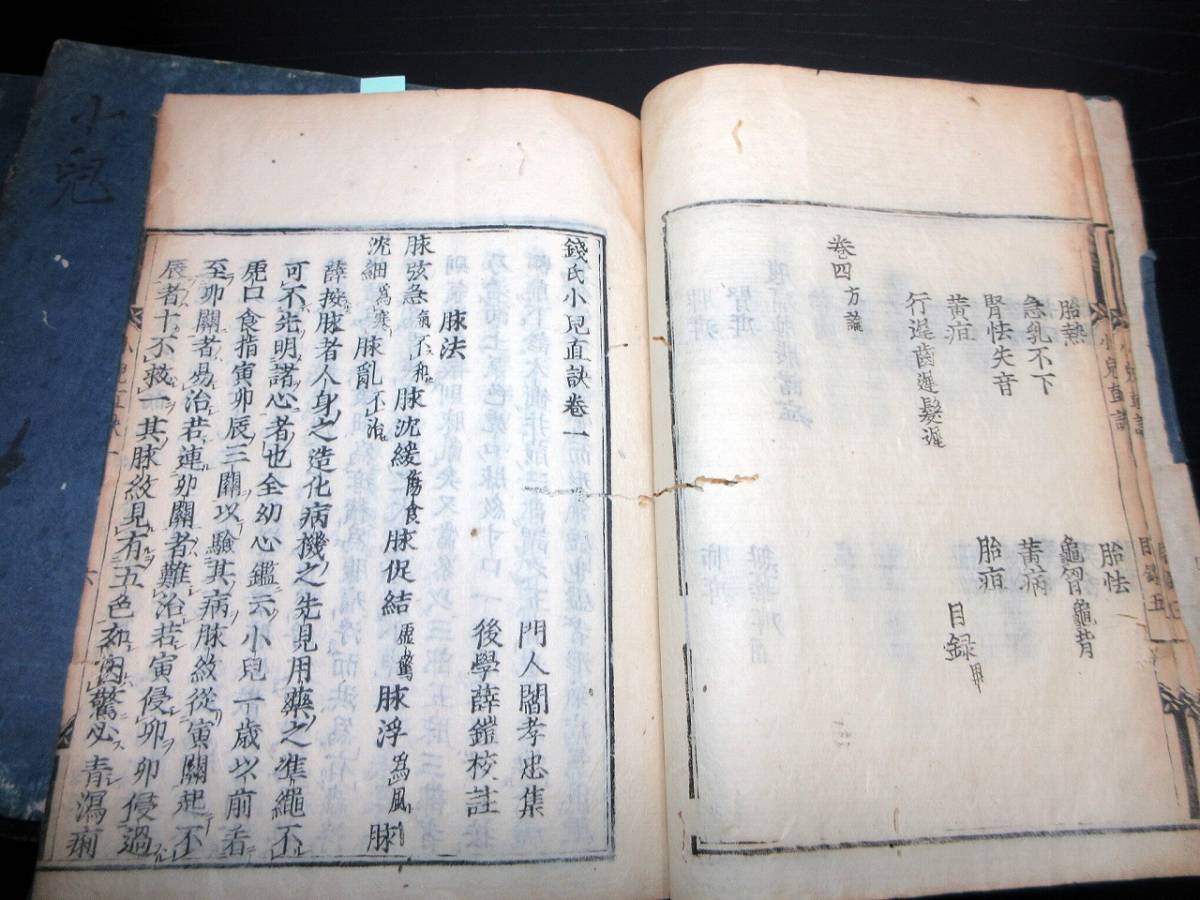 胎怯
胎熱
龜胷龜背
急乳不下
腎怯失音
黃疸
胎疸
行遲齒遲髮遲
目録
卷四方論
錢氏小兒直訣卷一
門人閻孝忠集
後學薛鎧校註
脉法
脉弦急氣不和脉沈緩傷食脉促結虚驚脉浮爲風脉
沈細爲寒脉亂不治
薛按脉者人身之造化病機之先見用藥之準繩不
可不先明諸心者也全幼心鑑云小兒一歲以前看
虎口食指寅卯辰三關以驗其病脉紋從寅關起不
至卯關者易治若連卯關者難治若寅侵卯卯侵過
辰者十不救一其脉紋見有五色如因驚必青瀉痢
小兒